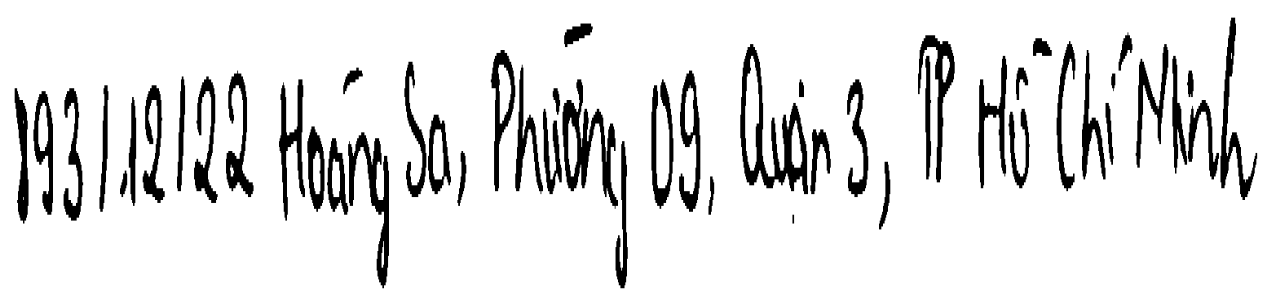 793/12/22 Hoàng Sa, Phường 09, Quận 3, TP Hồ Chí Minh